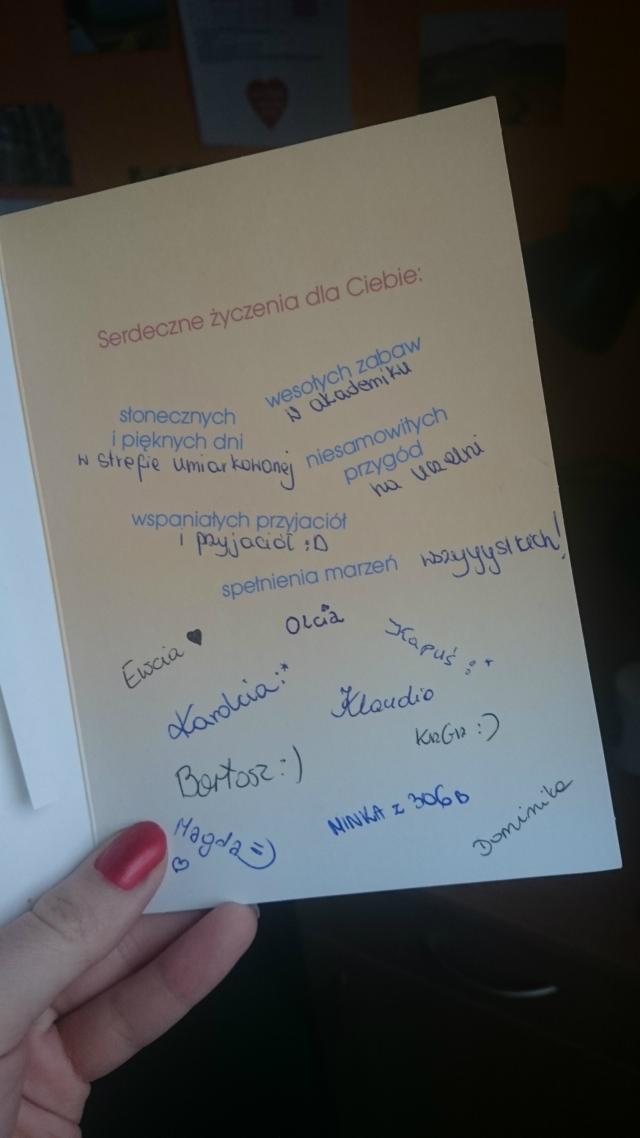 Serdeczne życzenia dla Ciebie:
wesołych zabaw
w akademiku
słonecznych
i pięknych dni
w strefie umiarkowanej
niesamowitych
przygód
na uczelni
wspaniałych przyjaciół
i przyjaciół :D
spełnienia marzeń
wszyyystkich!
Ewcia ♥
Olcia
Kapuś :*
Karolcia :*
Klaudia
Bartosz :)
:)
Magda =)
NINKA z 306B
Dominika